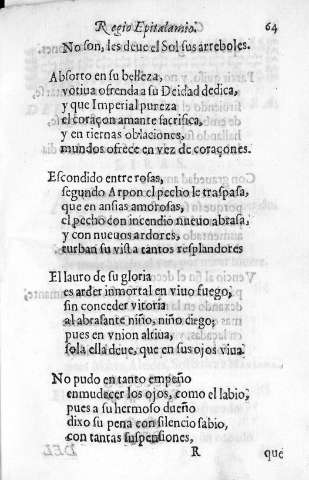 Regio Epitalamio. 64
No son, les deue el Sol sus arreboles.
Absorto en su belleza,
votiua ofrenda a su Deidad dedica,
y que Imperial pureza
el coraçon amante sacrifica,
y en tiernas oblaciones,
mundos ofrece en vez de coraçones.
Escondido entre rosas,
segundo Arpon el pecho le traspasa,
que en ansias amorosas,
el pecho con incendio nueuo abrasa,
y con nueuos ardores,
turban su vista tantos resplandores
El lauro de su gloria
es arder inmortal en viuo fuego,
sin conceder vitoria
al abrasante niño, niño ciego;
pues en vnion altiua,
sola ella deue, que en sus ojos viua.
No pudo en tanto empeño
enmudecer los ojos, como el labio,
pues a su hermoso dueño
dixo su pena con silencio sabio,
con tantas suspensiones,
R que